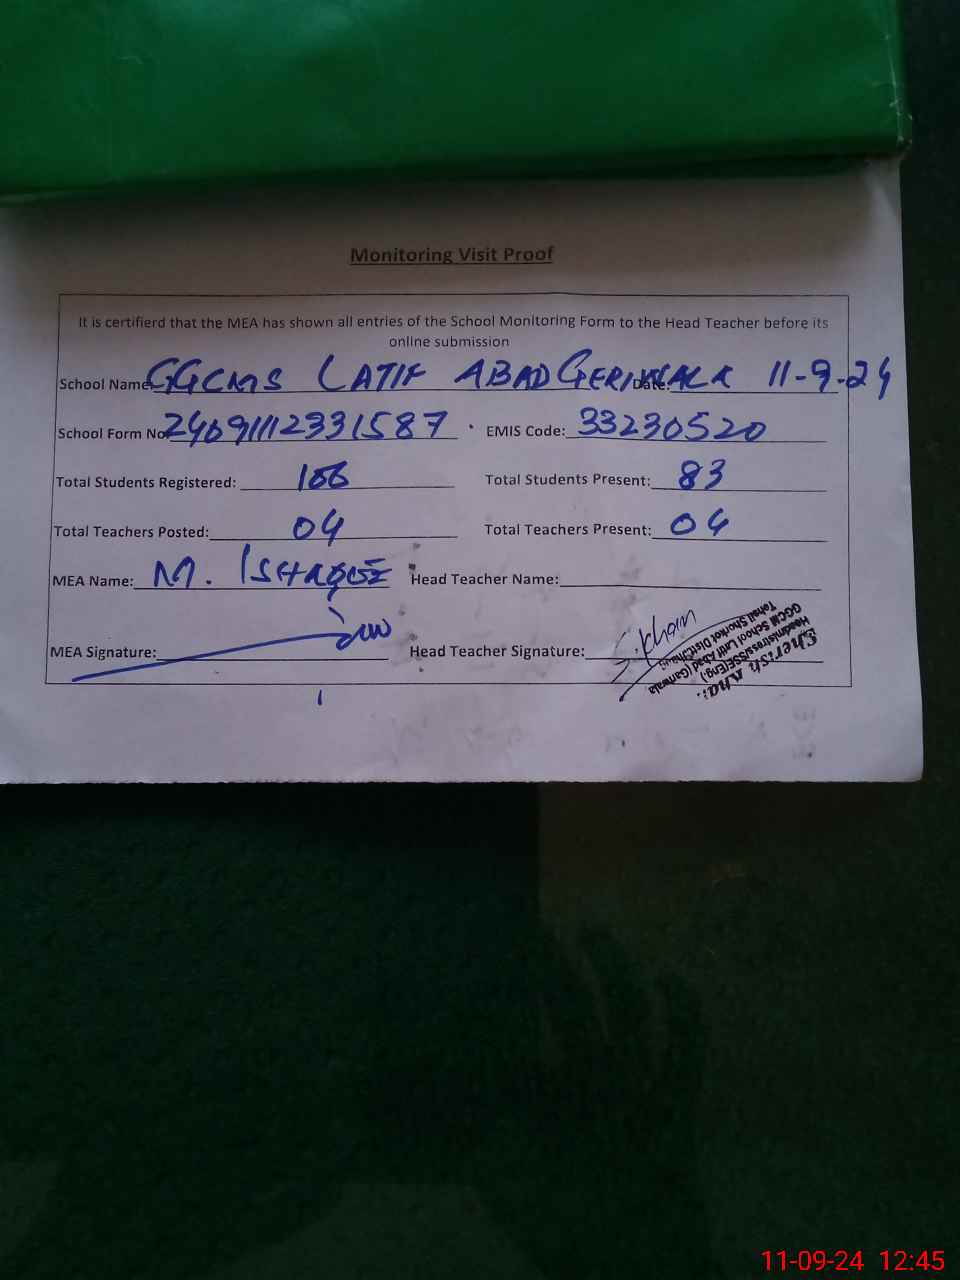 Monitoring Visit Proof
It is certifierd that the MEA has shown all entries of the School Monitoring Form to the Head Teacher before its
online submission
School Name: GGCMS LATIF ABAD GERIWALA Date: 11-9-24
School Form No: 24091112331587 EMIS Code: 33230520
Total Students Registered: 106 Total Students Present: 83
Total Teachers Posted: 04 Total Teachers Present: 04
MEA Name: M. ISHAQUE Head Teacher Name:
MEA Signature: Head Teacher Signature: S.Khan
Headmistress/SSE(Eng.)
GGCM School Latif Abad (Gariwala
Tehsil Shorkot Distt.Jhang
11-09-24 12:45